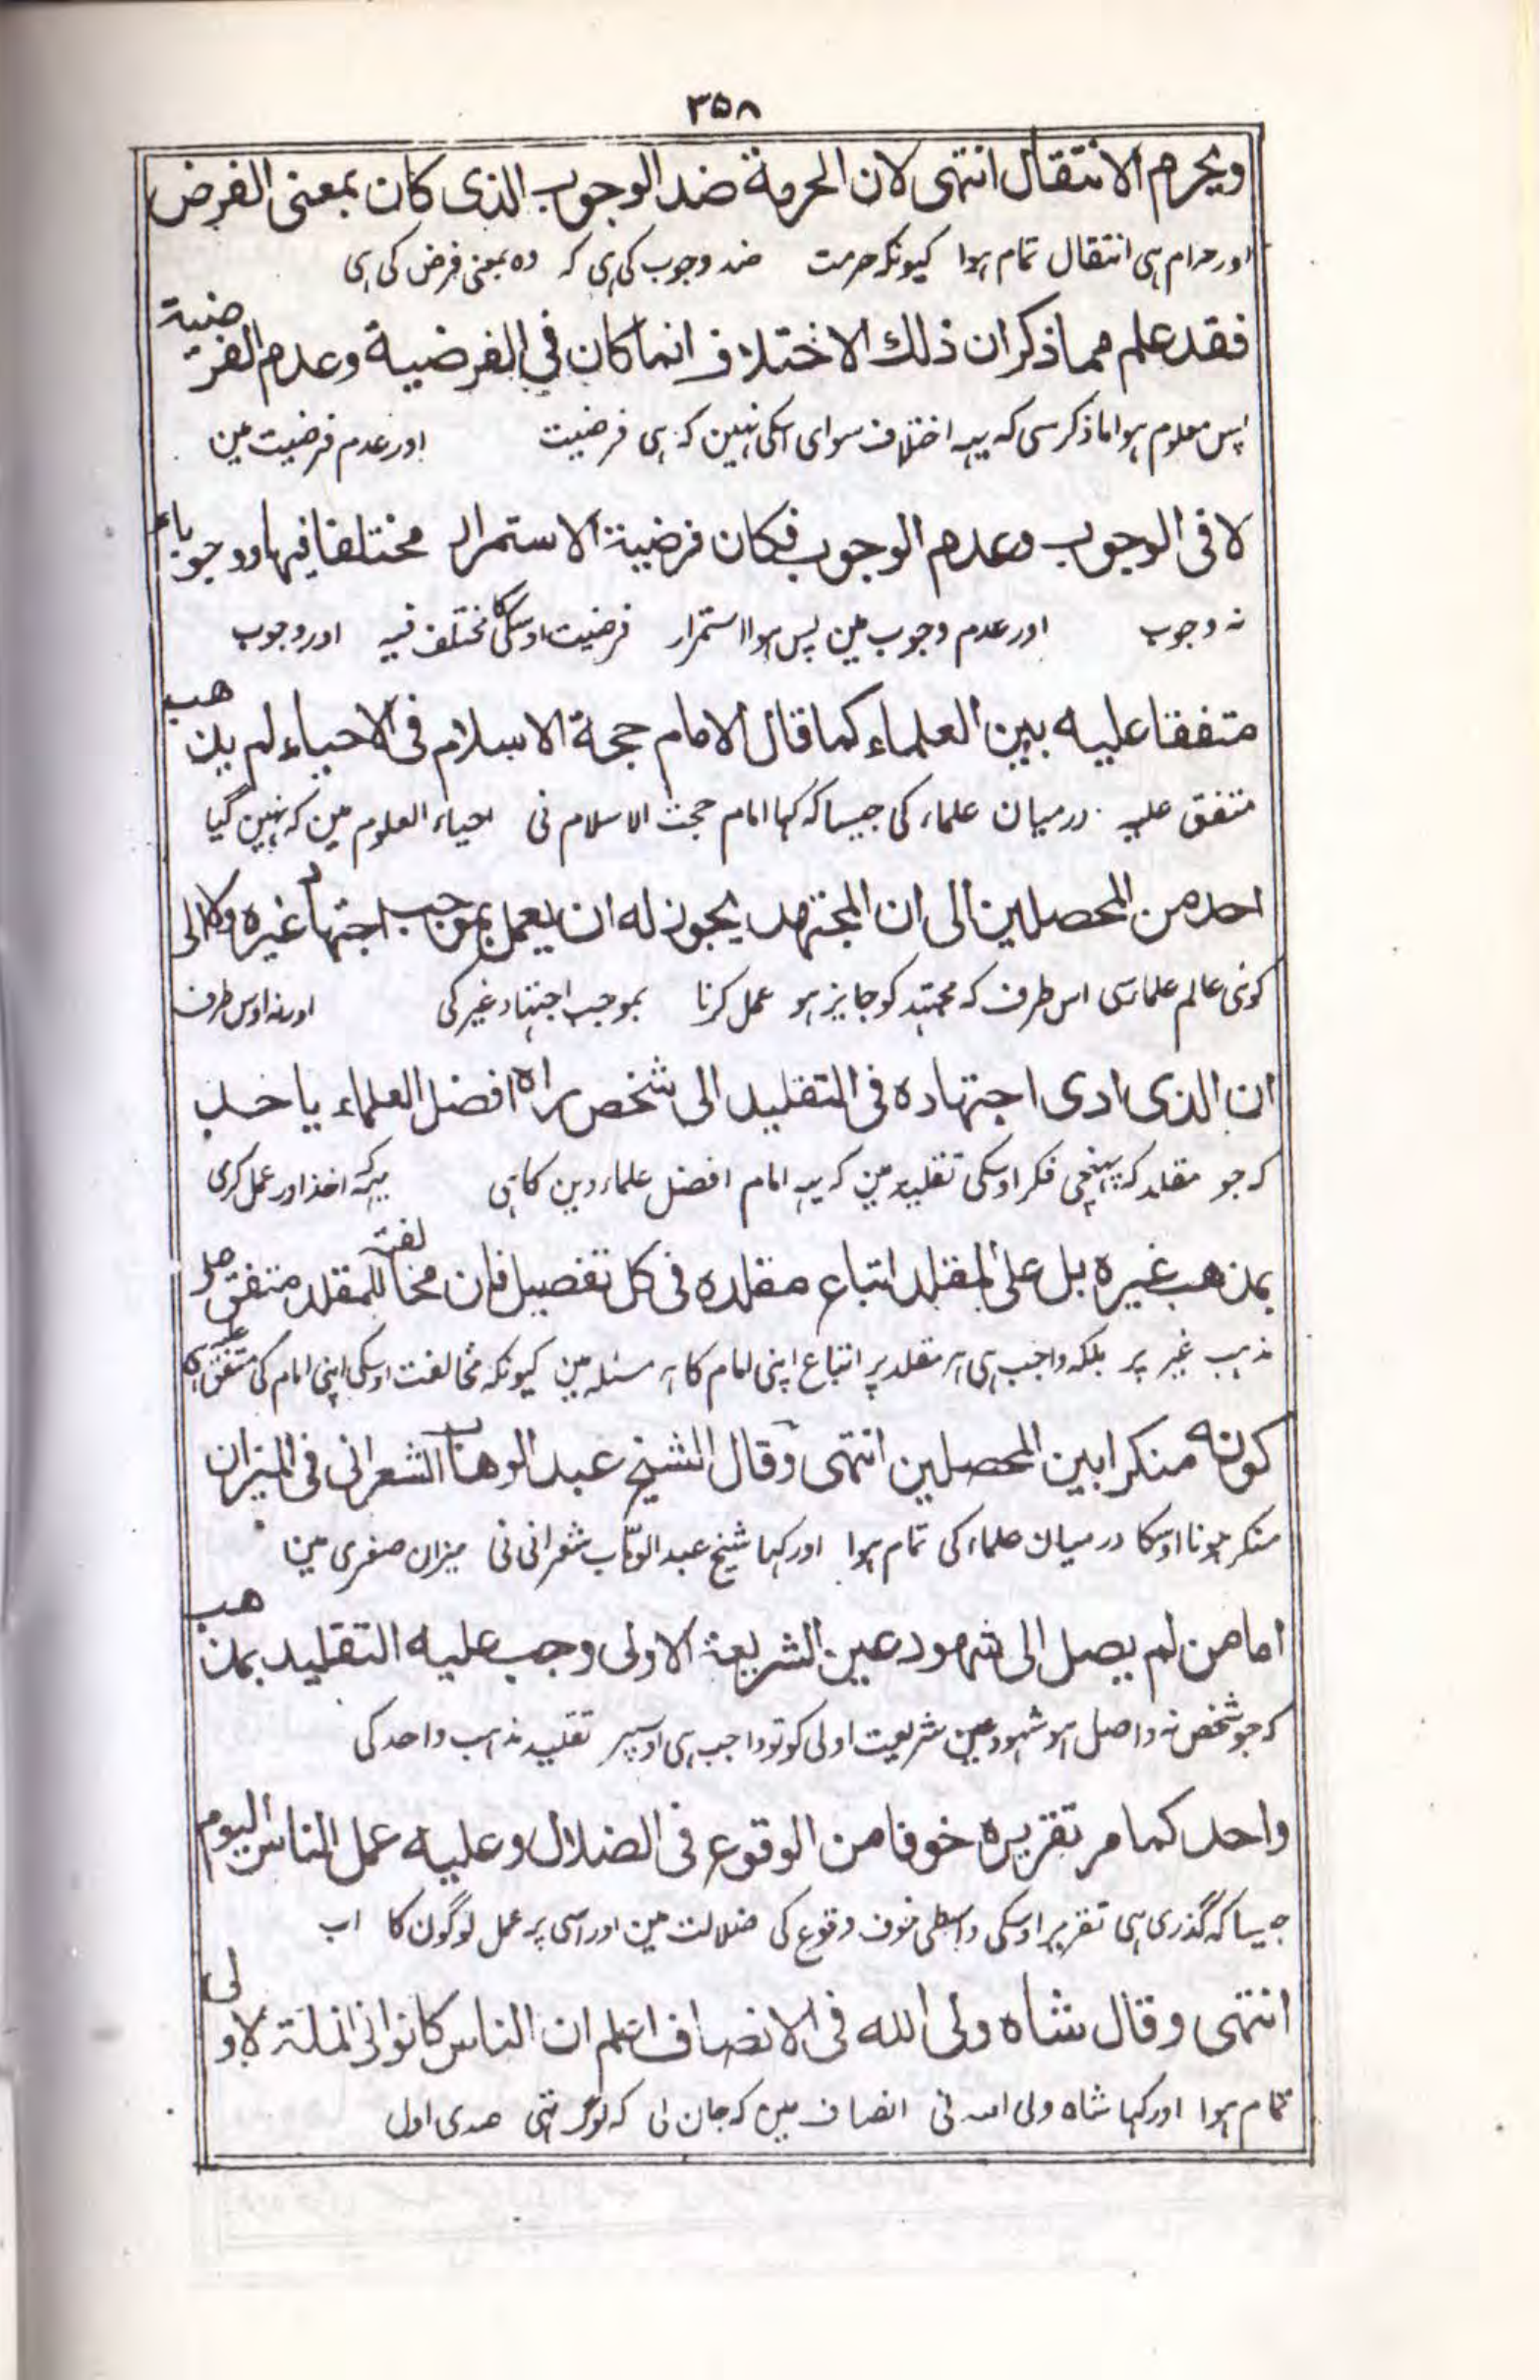 ٣٥٨
ويحرم الانتقال انتهى لان الحرمة ضد الوجوب الذى كان بمعنى الفرض
اور حرام ہی انتقال تمام ہوا کیونکہ حرمت ضد وجوب کی ہی کہ وہ بمعنی فرض کی ہی
فقد علم مما ذكر ان ذلك الاختلاف انما كان في الفرضية وعدم الفرضية
پس معلوم ہوا ماذکر سی کہ یہہ اختلاف سوای اسکی نہین کہ ہی فرضیت اور عدم فرضیت مین
لا فى الوجوب وعدم الوجوب فكان فرضية الاستمرار مختلفا فيها ووجوبا
نہ وجوب اور عدم وجوب مین پس ہوا استمرار فرضیت اوسکی کا مختلف فیہ اور وجوب
متفقا عليه بين العلماء كما قال الامام حجة الاسلام فى الاحياء لم يذهب
متفق علیہ درمیان علماء کی جیسا کہ کہا امام حجت الاسلام نی احیاء العلوم مین کہ نہین گیا
احد من المحصلين الى ان المجتهد يجوز له ان يعمل بموجب اجتهاد غيره ولا الى
کوئی عالم علما سی اس طرف کہ مجتہد کو جایز ہو عمل کرنا بموجب اجتہاد غیر کی اور نہ اوس طرف
ان الذى ادى اجتهاده فى التقليد الى شخص راه افضل العلماء ياخذ
کہ جو مقلد کہ پہنچی فکر اوسکی تقلید مین کہ یہہ امام افضل علماء دین کا ہی یہہ کہ اخذ اور عمل کری
بمذهب غيره بل على المقلد اتباع مقلده فى كل تفصيل فان مخالفته للمقلد متفق على
مذہب غیر پر بلکہ واجب ہی ہر مقلد پر اتباع اپنی امام کا ہر مسئلہ مین کیونکہ مخالفت اوسکی اپنی امام کی متفق علیہ
كونه منكرا بين المحصلين انتهى وقال الشيخ عبد الوهاب الشعرانى فى الميزان
منکر ہونا اوسکا درمیان علماء کی تمام ہوا اور کہا شیخ عبد الوہاب شعرانی نی میزان صغری مین
اما من لم يصل الى شهود عين الشريعة الاولى وجب عليه التقليد بمذهب
کہ جو شخص نہ واصل ہو شہود عین شریعت اولی کو تو واجب ہی اوسپر تقلید مذہب واحد کی
واحد كما مر تقريره خوفا من الوقوع فى الضلال وعليه عمل الناس اليوم
جیسا کہ گذری ہی تقریر اوسکی واسطی خوف وقوع کی ضلالت مین اور اسی پر عمل لوگون کا اب
انتهى وقال شاه ولى الله فى الانصاف اعلم ان الناس كانوا فى المئة الاولى
تمام ہوا اور کہا شاہ ولی اللہ نی انصاف مین کہ جان لی کہ لوگ تہی صدی اول